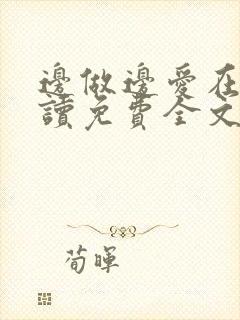 邊做邊愛在
讀免費全文
荀暉